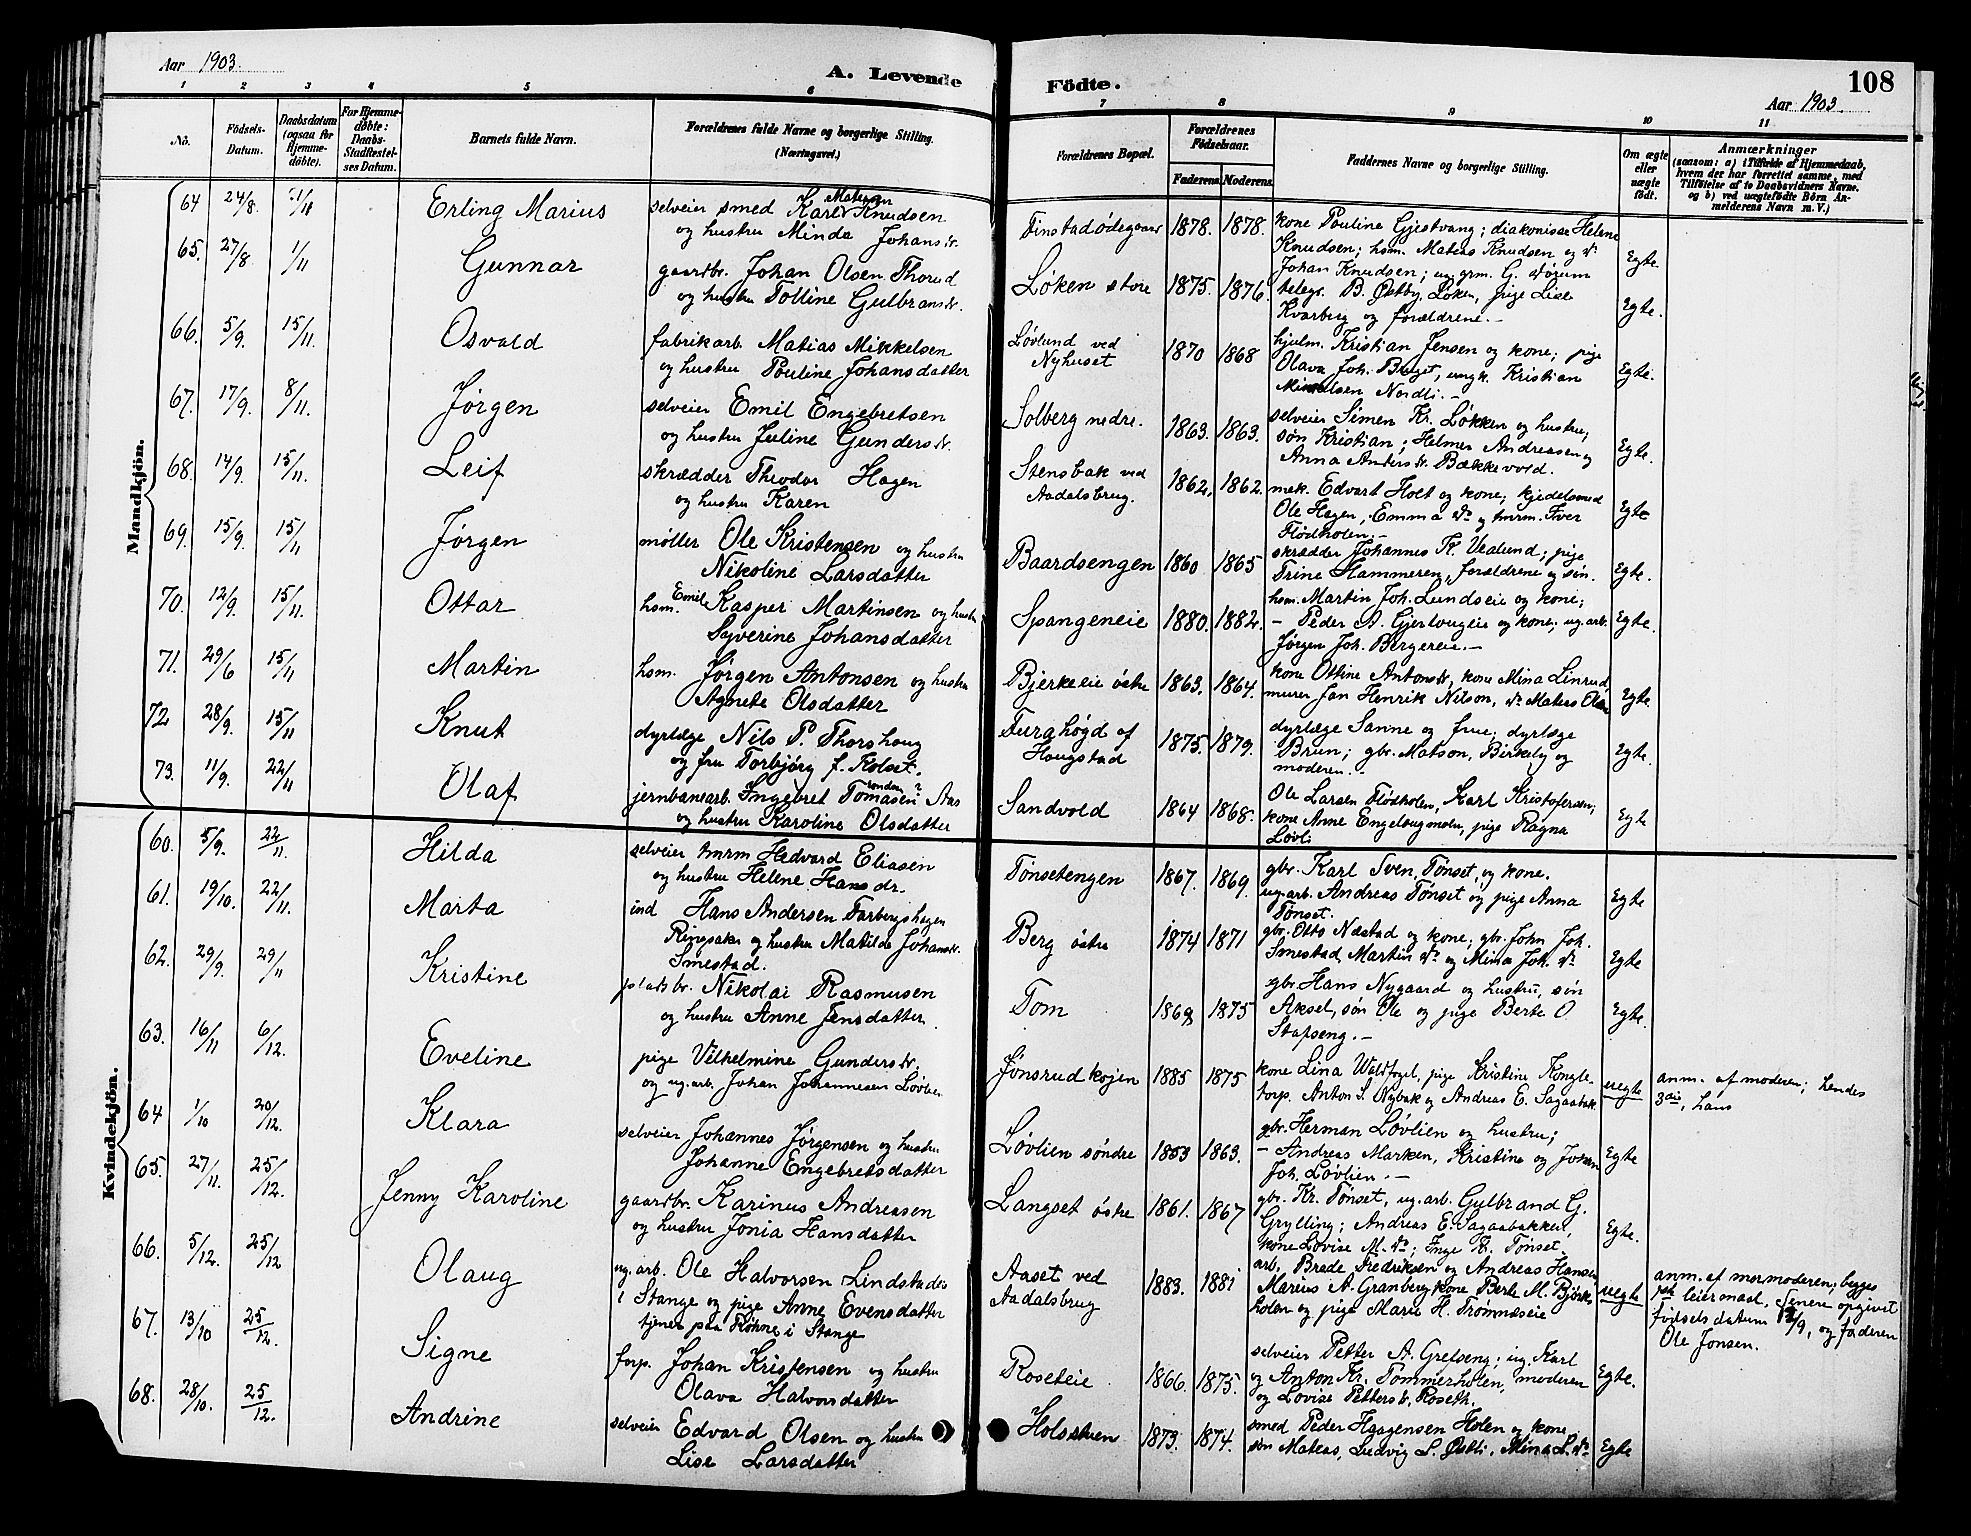 Aar 1903.
A. Levende
Födte.
108
Aar 1903.
1 2 3 4 5 6 7 8 9 10 11
No.
Födsels-Datum.
Daabsdatum (ogsaa for Hjemme-döbte).
For Hjemme-döbte: Daabs-Stadfæstel-ses Datum.
Barnets fulde Navn.
Forældrenes fulde Navne og borgerlige Stilling. (Næringsvei.)
Forældrenes Bopæl.
Forældrenes Födselsaar.
Faderens. Moderens.
Faddernes Navne og borgerlige Stilling.
Om ægte eller uægte födt.
Anmærkninger
(saasom: a) i Tilfælde af Hjemmedaab, hvem der har forrettet samme, med Tilföielse af to Daabsvidners Navne. og b) ved uægtefödte Börn An-melderens Navn m. V.)
Mandkjön.
64 24/8. 1/11 Erling Marius
selveier smed Karl Matesen Knudsen
og hustru Minda Johansdr.
Finstadødegaard 1878. 1878.
kone Pouline Gjestvang; diakonisse Helene
Knudsen; hsm. Matias Knudsen og do
Johan Knudsen;
Egte.
65. 27/8. 1/11 Gunnar
gaardbr. Johan Olsen Thorud
og hustru Tolline Gulbransdr.
Løken store 1875. 1876.
telegr. B. Østby, Løken, pige Lise
Kvarberg og forældrene.-
Egte.
66. 5/9. 15/11. Osvald
fabrikarb. Matias Mikkelsen
og hustru Pouline Johansdatter
Løvlund ved
Nyhuset
1870 1868
hjulm. Kristian Jensen og kone; pige
Olava Joh. Buget, ungk. Kristian
Nordli.-
Egte.
67. 17/9. 8/11. Jørgen
selveier Emil Engebretsen
og hustru Juline Gundersdr.
Solberg nedre. 1863. 1863.
selveier Simen Kr. Løkken og hustru,
søn Kristian; Helmer Andreasen og
Anna Andersdr. Bækkevold.
Egte.
68. 14/9. 15/11. Leif
skrædder Theodor Hagen
og hustru Karen
Stensbak ved
Aadalsbrug.
1862. 1862.
mek. Edvart Holt og kone; kjedelsmed
Ole Hagen, Emma do og tmrm. Iver
Flødholen.-
Egte
69. 15/9. 15/11 Jørgen
møller Ole Kristensen og hustru
Nikoline Larsdatter
Baardsengen 1860 1865
skrædder Johannes Kr. Vealund; pige
Trine Hammeren, forældrene og søn.
Egte.
70. 12/9. 15/11. Ottar
hsm. Emil Kasper Martinsen og hustru
Syverine Johansdatter
Spangeneie 1880. 1882.
hsm. Martin Joh. Lundseie og kone;
- Peder A. Gjerlougeie og kone; ug. arb.
Jørgen Joh. Bergereie.-
Egte.
71. 29/6 15/11 Martin
hsm. Jørgen Antonsen og hustru
Agnete Olsdatter
Bjerkeeie østre 1863. 1864.
kone Ottine Antonsdr., kone Mina Linrud,
murer Jan Henrik Nilson, do Mateus Olsen
Egte.
72 28/9. 15/11 Knut
dyrlæge Nils P. Thorshaug
og fru Torbjørg f. Kolset.
Furuhøgd af
Hougstad
1875. 1879.
dyrlæge Sanne og frue; dyrlæge
Brun; gbr. Matson, Birkely og
moderen.-
Egte.
73. 11/9. 22/11 Olaf
jernbanearb. Ingebret Tomasen Aas
og hustru Karoline Olsdatter
Sandvold 1864 1868.
Ole Larsen Flødholen, Karl Kristofersen;
kone Anne Engelougmoen, pige Ragna
Løvli
Egte
Kvindekjön.
60. 5/9. 22/11. Hilda
selveier tmrm Hedvard Eliasen
og hustru Helene Hansdr.
Tønsetengen 1867. 1869.
gbr. Karl Sven. Tønset, og kone.
ug. arb. Andreas Tønset og pige Anna
Tønset.
Egte
61. 19/10. 22/11. Marta
ind Hans Andersen Farbergshagen
Ringsaker og hustru Matilde Johansdr.
Smestad.
Berg østre 1874 1871
gbr. Otto Næstad og kone; gbr. John Joh.
Smestad, Martin do og Mina Joh. do
Egte
62. 29/9. 29/11 Kristine
pladsbr. Nikolai Rasmusen
og hustru Anne Jensdatter.
Tom 1869 1875
gbr. Hans Nygaard og hustru, søn
Aksel, søn Ole og pige Berte O
Stafseng.-
Egte.
63. 16/11 6/12. Eveline
pige Vilhelmine Gundersdr.
og ug. arb. Johan Johannesen Løvlien
Jønsrudkojen 1885 1875
kone Lina Waldfogel, pige Kristine Kongle-
torp. Anton S. Nybak og Andreas E. Sagaabak.
uegte
anm. af moderen; hendes
3die, hans
64 1/10 20/12. Klara
selveier Johannes Jørgensen og hustru
Johanne Engebretsdatter
Løvlien søndre 1853 1863.
gbr. Herman Løvlien og hustru;
- Andreas Marken, Kristine og Johan
Joh. Løvlien.-
Egte
65. 27/11. 25/12. Jenny Karoline
gaardbr. Karinus Andreasen
og hustru Jonia Hansdatter
Langset østre 1861. 1867
gbr. Kr. Tønset, ug. arb. Gulbrand G.
Grylling; Andreas E. Sagaabakken,
kone Lovise M. do; Inge Kr. Tønset.
Egte.
66. 5/12. 25/12 Olaug
ug. arb. Ole Halvorsen Lindstadeie
i Stange og pige Anne Evensdatter
tjener paa Røhne i Stange
Aaset ved
Aadalsbrug
1883. 1881
arb. Brede Fredriksen og Andreas Hansen
Marius A. Granberg kone Berte M. Bjørke-
holen og pige Marie H. Trommæseie
uegte
anm. af mormoderen; begges
1ste leiermaal. Senere opgivet
fødselsdatum 12/9, og faderen
Ole Jonsen.
67. 13/10 25/12. Signe
forp. Johan Kristensen og hustru
Olava Halvorsdatter
Roseteie 1866. 1875.
selveier Petter A. Grefseng; ug. Karl
og Anton Kr. Tømmerholen, moderen
og Lovise Pettersdr. Roseth.
Egte.
68. 28/10. 25/12. Andrine
selveier Edvard Olsen og hustru
Lise Larsdatter
Holsstuen 1873. 1874.
smed Peder Haagensen Holen og kone
søn Mateas, Ludvig L. Østli, Mina L. do
Egte